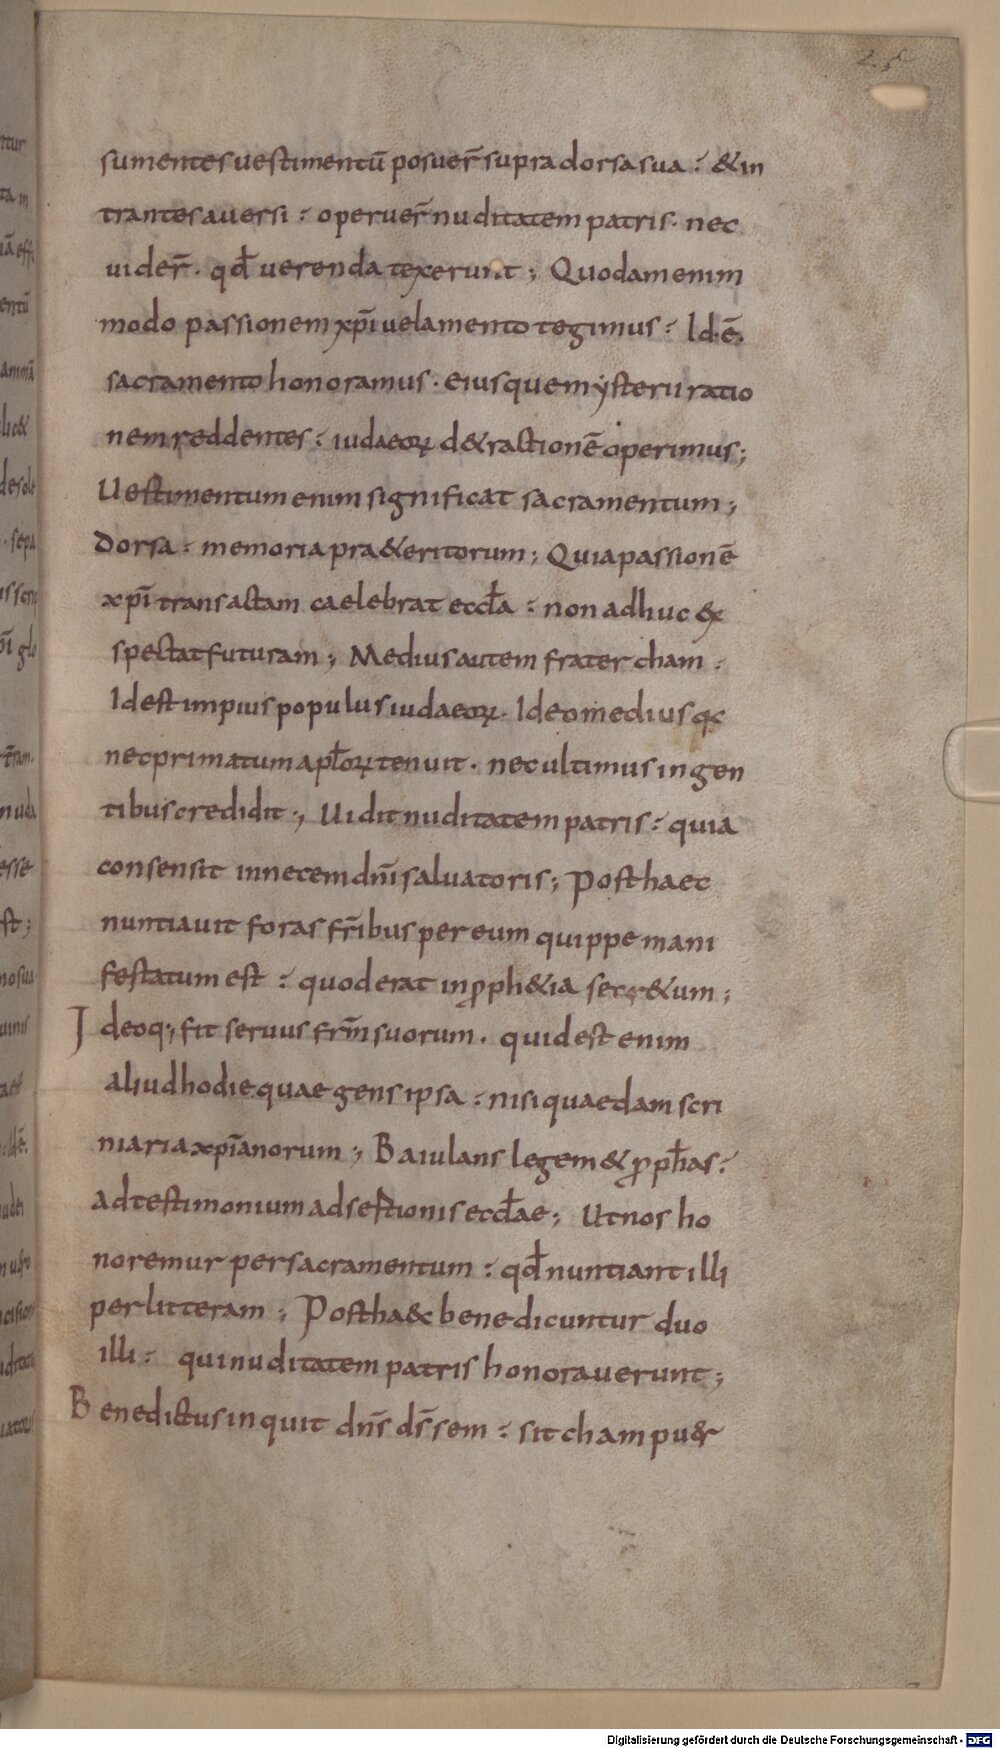 25
sumentes uestimentū posuer̄ supra dorsa sua : & in
trantes auersi : operuer̄ nuditatem patris · nec
uider̄ · qđ uerenda texerunt ; Quodam enim
modo passionem xp̄i uelamento tegimus : Id·ē·
sacramento honoramus · eiusque mẏsterii ratio
nem reddentes : iudaeoꝝ d&ractionē operimus ;
Uestimentum enim significat sacramentum ;
Dorsa : memoria pra&eritorum ; Quia passionē
xp̄i transactam caelebrat eccł̄a : non adhuc ex
spectat futuram ; Medius autem frater cham :
Id est impius populus iudaeoꝝ · Ideo medius q̣c
nec primatum apł̄oꝝ tenuit · nec ultimus in gen
tibus credidit ; Uidit nuditatem patris : quia
consensit in necem dn̄i saluatoris ; Post haec
nuntiauit foras fr̄ibus per eum quippe mani
festatum est : quod erat in ꝓph&ia secr&um ;
Ideoq; fit seruus fr̄m suorum · quid est enim
aliud hodie quae gens ipsa : nisi quaedam scri
niaria xp̄ianorum ; Baiulans legem & ꝓph̄as :
ad testimonium adsestionis eccł̄ae ; Ut nos ho
noremur per sacramentum : qđ nuntiant illi
per litteram ; Post ha&c benedicuntur duo
illi : qui nuditatem patris honorauerunt ;
Benedictus inquit dn̄s ds̄ sem : sit cham pu&r
Digitalisierung gefördert durch die Deutsche Forschungsgemeinschaft - DFG